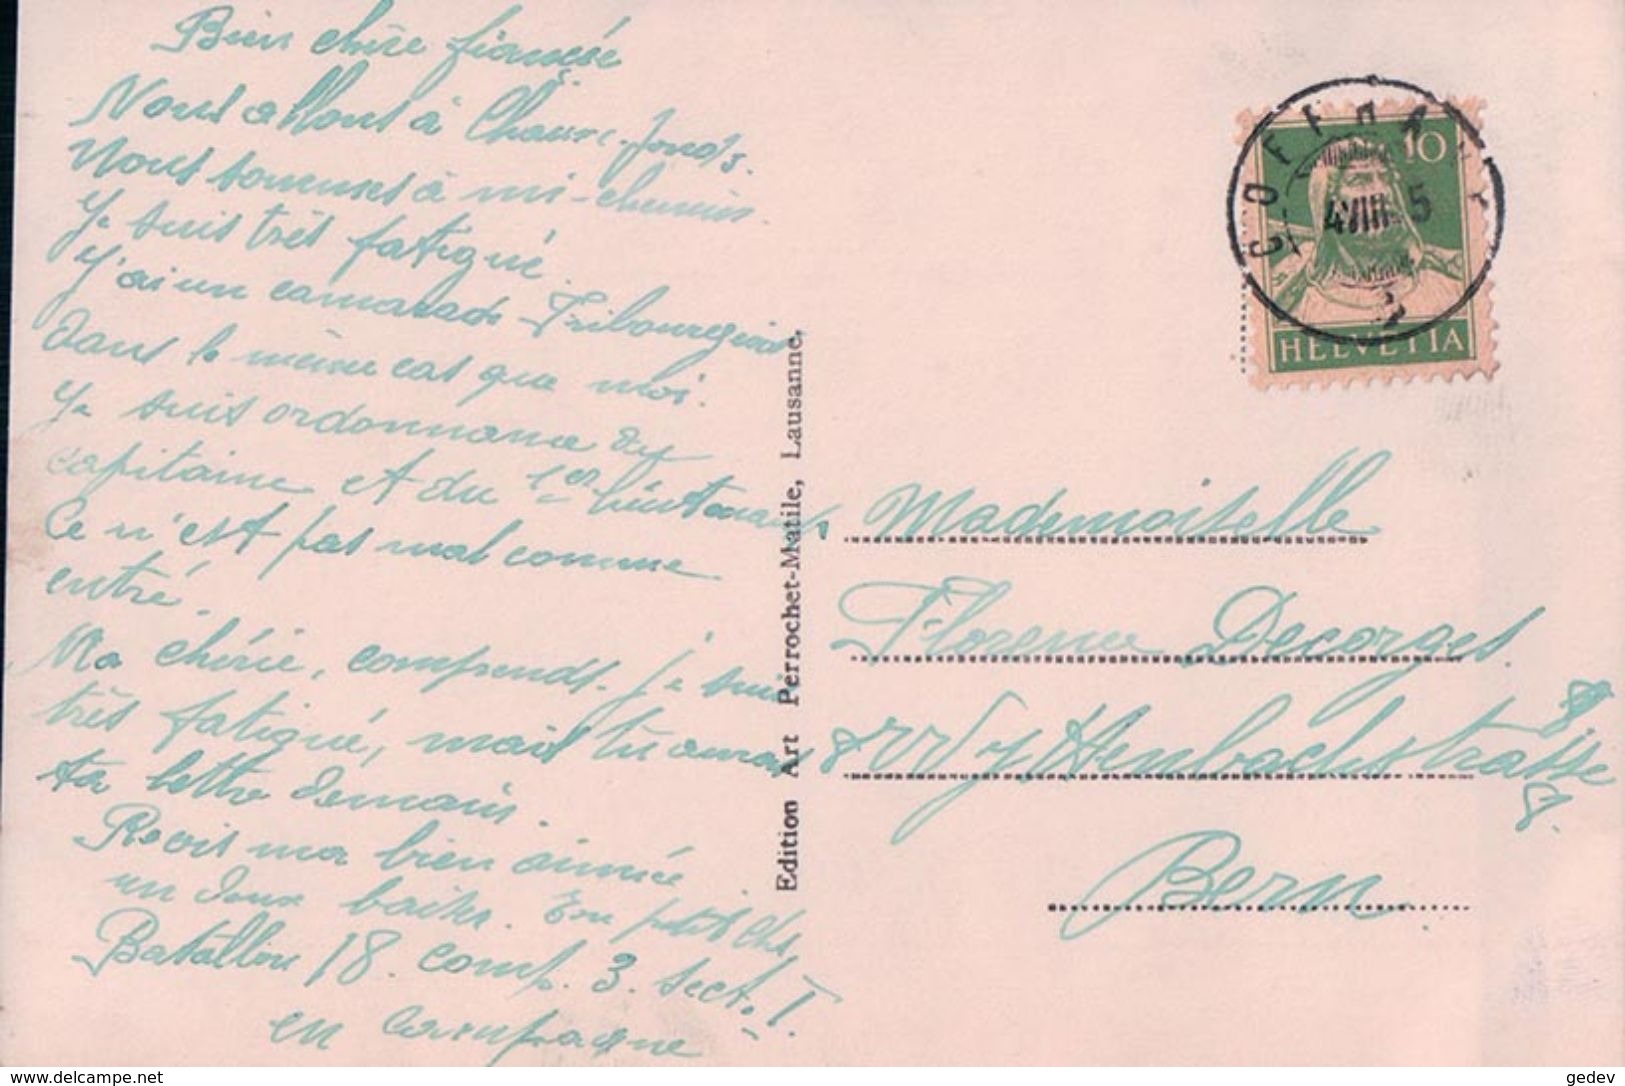 Bien chère fiancée
Nous allons à Chaux-fonds.
Nous sommes à mi-chemin.
Je suis très fatigué.
J'ai un camarade Fribourgeois
dans le même cas que moi.
Je suis ordonnance du
capitaine et du 1er lieutenant,
Ce n'est pas mal comme
entré.
Ma chérie, comprends. je suis
très fatigué, mais tu auras
ta lettre demain.
Recois ma bien aimée
un doux baiser. Ton petit
Bataillon 18. comp. 3. sect. I.
en campagne
Edition Art Perrochet-Matile, Lausanne.
COFFRANE
4.VIII. 5
10
HELVETIA
Mademoiselle
Florence Decorges
8
8.
Bern.
www.delcampe.net
gedev